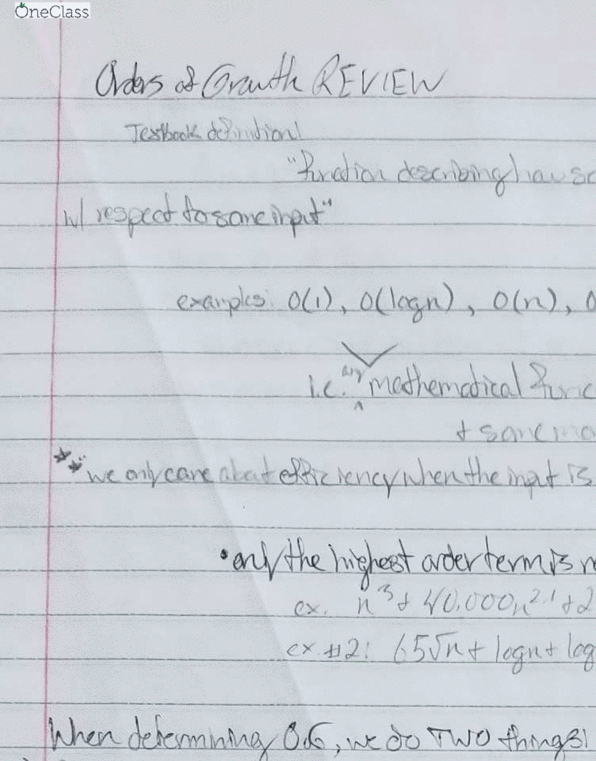 OneClass
Orders of Growth REVIEW
Textbook definition!
"function describing how sc
w/ respect to some input"
examples: O(1), O(logn), O(n), O
i.e. any mathematical func
+ some mo
** we only care about efficiency when the input is
• only the highest order term is r
ex. n³ + 40,000n².¹ + 2
ex #2: 65√n + logn + log
When determining O.G, we do TWO things: